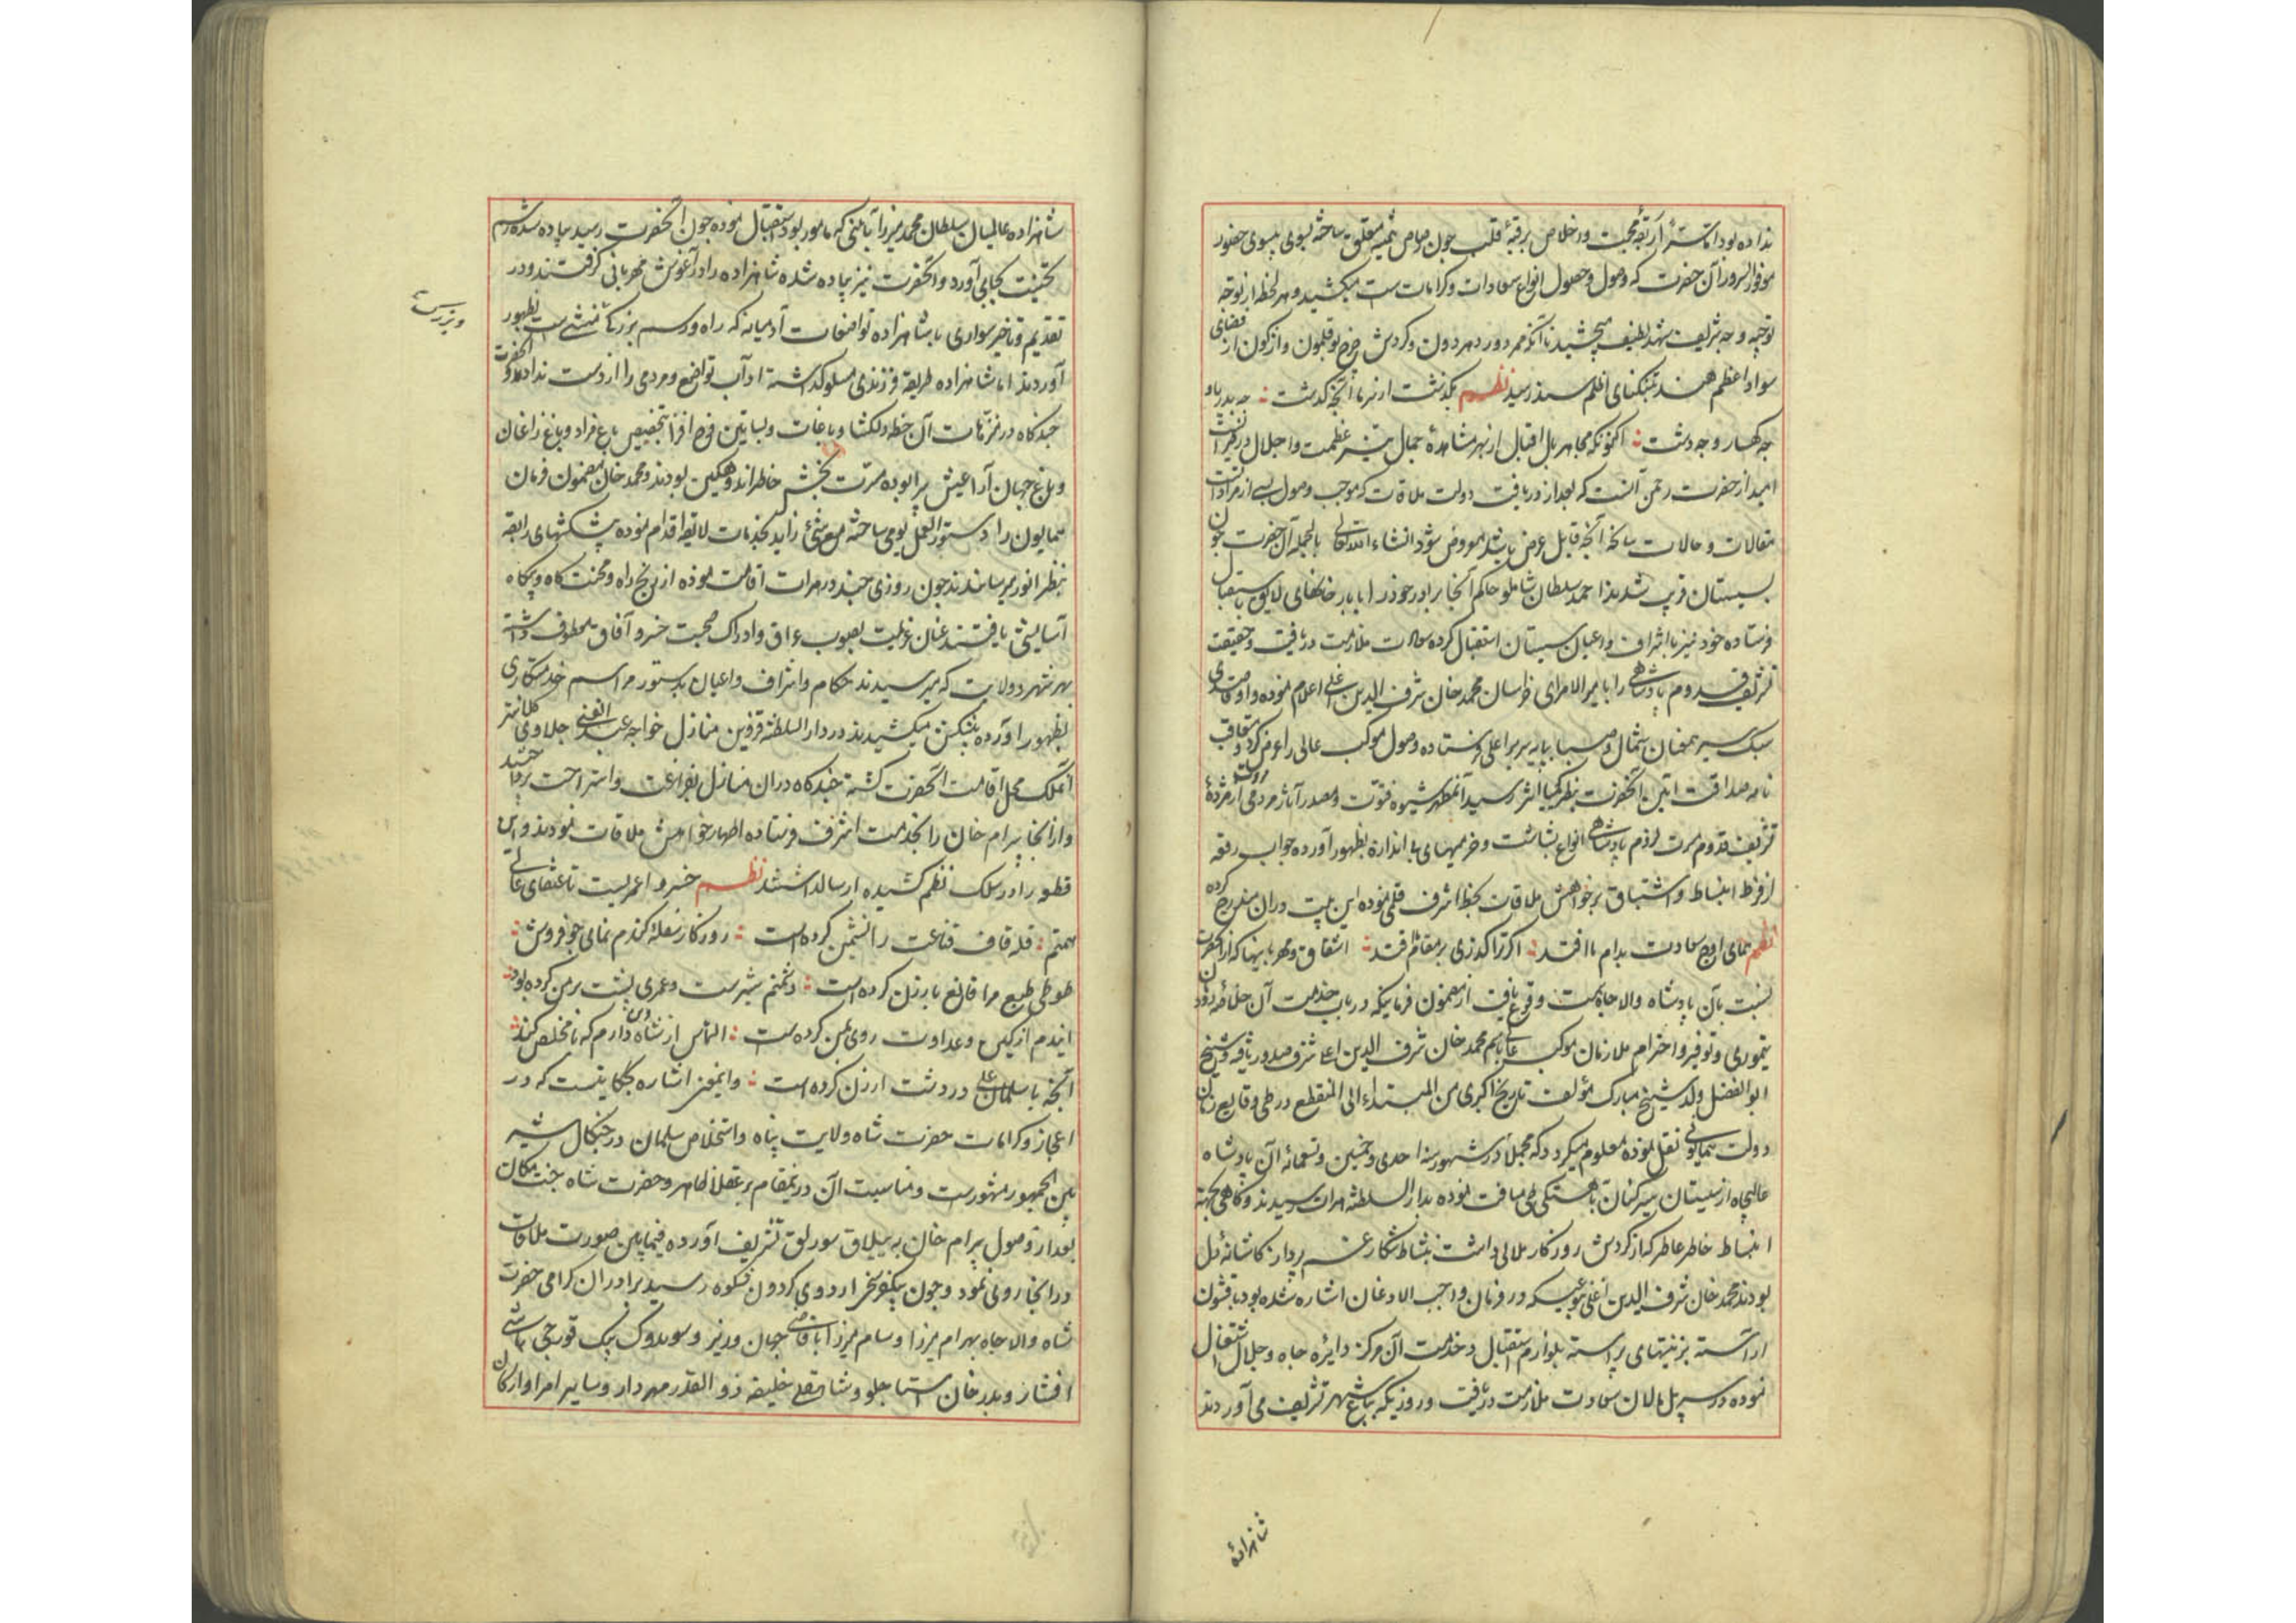 نداده بود اما رشتهٔ رابقهٔ محبت و اخلاص برقبهٔ قلب چون رصاص تمیمهٔ معلق ساخته بسوی حضور
موفور السرور آن حضرت که وصول و حصول انواع سعادات و کرامات ست میکشید و هر لحظه از توجه
توجیه وجه شریف شهد لطیف میچشید تا آنکه ممر دور دهر دون و گردش چرخ بوقلمون واژگون از فضای
سواد اعظم هند بتنکنای اظلم سند رسید نظم بگذشت از سر ما آنچه گذشت چه بدریا و
چه کهسار و چه دشت اکنونکه مجاهر بال اقبال از بهر مشاهدهٔ جمال عظمت و اجلال در طیرانست
امید از حضرت رحمن آنست که بعد از دریافت دولت ملاقات که موجب وصول بسی از مرادات
مقالات و حالات سانحه آنچه قابل عرض باشد معروض شود انشاء الله تعالی بالجمله آن حضرت چون
بسیستان قریب شدند احمد سلطان شاملو حاکم آنجا برادر خود را با بارخانهای لایق باستقبال
فرستاده خود نیز با اشراف و اعیان سیستان استقبال کرده سعادت ملازمت دریافت و حقیقت
تشریف قدوم پادشاهی را با میر الامرای خراسان محمد خان شرف الدین اغلی اعلام نموده و او قاصدی
سبک سیر همعنان شمال و صبا بپایه سریر اعلی فرستاده وصول موکب عالی را عرض کرد و متعاقب
نامه صداقت آیین آنحضرت بنظر کیمیا اثر رسید آنمظهر شیوه فتوت و مصدر آثار مروت و مردمی از مژدهٔ
تشریف قدوم مسرت لزوم پادشاهی انواع بشاشت و خرمیهای بی اندازه بظهور آورده جواب رقعه
از فرط انبساط و اشتیاق بر خواهش ملاقات بخط اشرف قلمی نموده این بیت در آن مندرج کرده
نظم همای اوج سعادت بدام ما افتد اگر ترا گذری بر مقام ما افتد اشفاق و مهربانیها که از آنحضرت
نسبت بآن پادشاه والاجاه بسمت وقوع یافت از مضمون فرمانیکه در باب خدمت آن خلف دودمان
تیموری و توقیر و احترام ملازمان موکب عالی باسم محمد خان شرف الدین اغلی شرف صدور یافته و شیخ
ابوالفضل ولد شیخ مبارک مؤلف تاریخ اکبری من المبتداء الی المنقطع در طی وقایع زمان
دولت همایونی نقل نموده معلوم میگردد که مجملاً در شهور سنه احدی و خمسین و تسعمائه آن پادشاه
عالیجاه از سیستان سیر کنان بآهستگی طی مسافت نموده بدار السلطنه هرات رسیدند و گاهی بجهة
انبساط خاطر عاطر که از گردش روزگار ملالی داشت بنشاط شکار غم پرداز کاشانهٔ دل
بودند محمد خان شرف الدین اغلی بنوعیکه در فرمان واجب الاذعان اشاره شده بود با قشون
آراسته بزینتهای پیراسته بلوازم استقبال و خدمت آن مرکز دایره جاه و جلال اشتغال
نموده در سر پل مالان سعادت ملازمت دریافت و روزیکه بباغ شهر تشریف می آوردند
شاهزاده
شاهزاده عالمیان سلطان محمد میرزا بآیینی که مامور بود استقبال نموده چون آنحضرت رسید پیاده شده رسم
تحیت بجای آورد و آنحضرت نیز پیاده شده شاهزاده را در آغوش مهربانی گرفتند و در
تقدیم و تاخیر سواری با شاهزاده تواضعات آدمیانه که راه و رسم بزرگ منشی ست بظهور
آوردند اما شاهزاده طریقه فرزندی مسلوک داشته آداب تواضع و مردمی را از دست ندادند و آنحضرت
چندگاه در نزهات آن خطه دلگشا و باغات و بساتین فرح افزا بتخصیص باغ مراد و باغ زاغان
و باغ جهان آرا عیش پیرا بوده مسرت بخش خاطر اندوهگین بودند و محمد خان مضمون فرمان
همایون را دستور العمل یومی ساخته مع شئ زاید بخدمات لایقه اقدام نموده پیشکشهای رایقه
بنظر انور میرسانیدند چون روزی چند در هرات اقامت نموده از رنج راه و محنت گاه و بیگاه
آسایشی یافتند عنان عزیمت بصوب عراق و ادراک صحبت خسرو آفاق معطوف داشته
بهر شهر و ولایت که میرسیدند حکام و اشراف و اعیان بدستور مراسم خدمتکاری
بظهور آورده پیشکش میکشیدند در دار السلطنه قزوین منازل خواجه عبد الغنی جلاوی کلانتر
آنملک محل اقامت آنحضرت گشته چندگاه در آن منازل بفراغت و استراحت پرداختند
و از آنجا بیرام خان را بخدمت اشرف فرستاده اظهار خواهش ملاقات نمودند و این
قطعه را در سلک نظم کشیده ارسال داشتند نظم خسروا عمریست تا عنقای عالی
همتم قله قاف قناعت را نشیمن کرده است روزگار سفله گندم نمای جو فروش
طوطی طبع مرا قانع بارزن کرده است دشمنم شیرست و عمری پشت بر من کرده بود
ایندم از کین و عداوت روی بمن کرده است التماس از شاه دین دارم که با مخلص کند
آنچه با سلمان علی در دشت ارژن کرده است و اینمعنی اشاره بحکایتیست که در
اعجاز و کرامات حضرت شاه ولایت پناه و استخلاص سلمان در چنگال شیر
بین الجمهور مشهورست و مناسبت آن در اینمقام بر عقلا ظاهر و حضرت شاه جنت مکان
بعد از وصول بیرام خان به ییلاق سورلق تشریف آورده فیمابین صورت ملاقات
در آنجا روئی نمود و چون بیکفرسخی اردوی گردون شکوه رسید برادران گرامی حضرت
شاه والاجاه بهرام میرزا و سام میرزا با قاضی جهان وزیر و سوندوک بیک قورچی باشی
افشار و بدر خان استاجلو و شاهقلی خلیفه ذو القدر مهردار و سایر امرا و ارکان